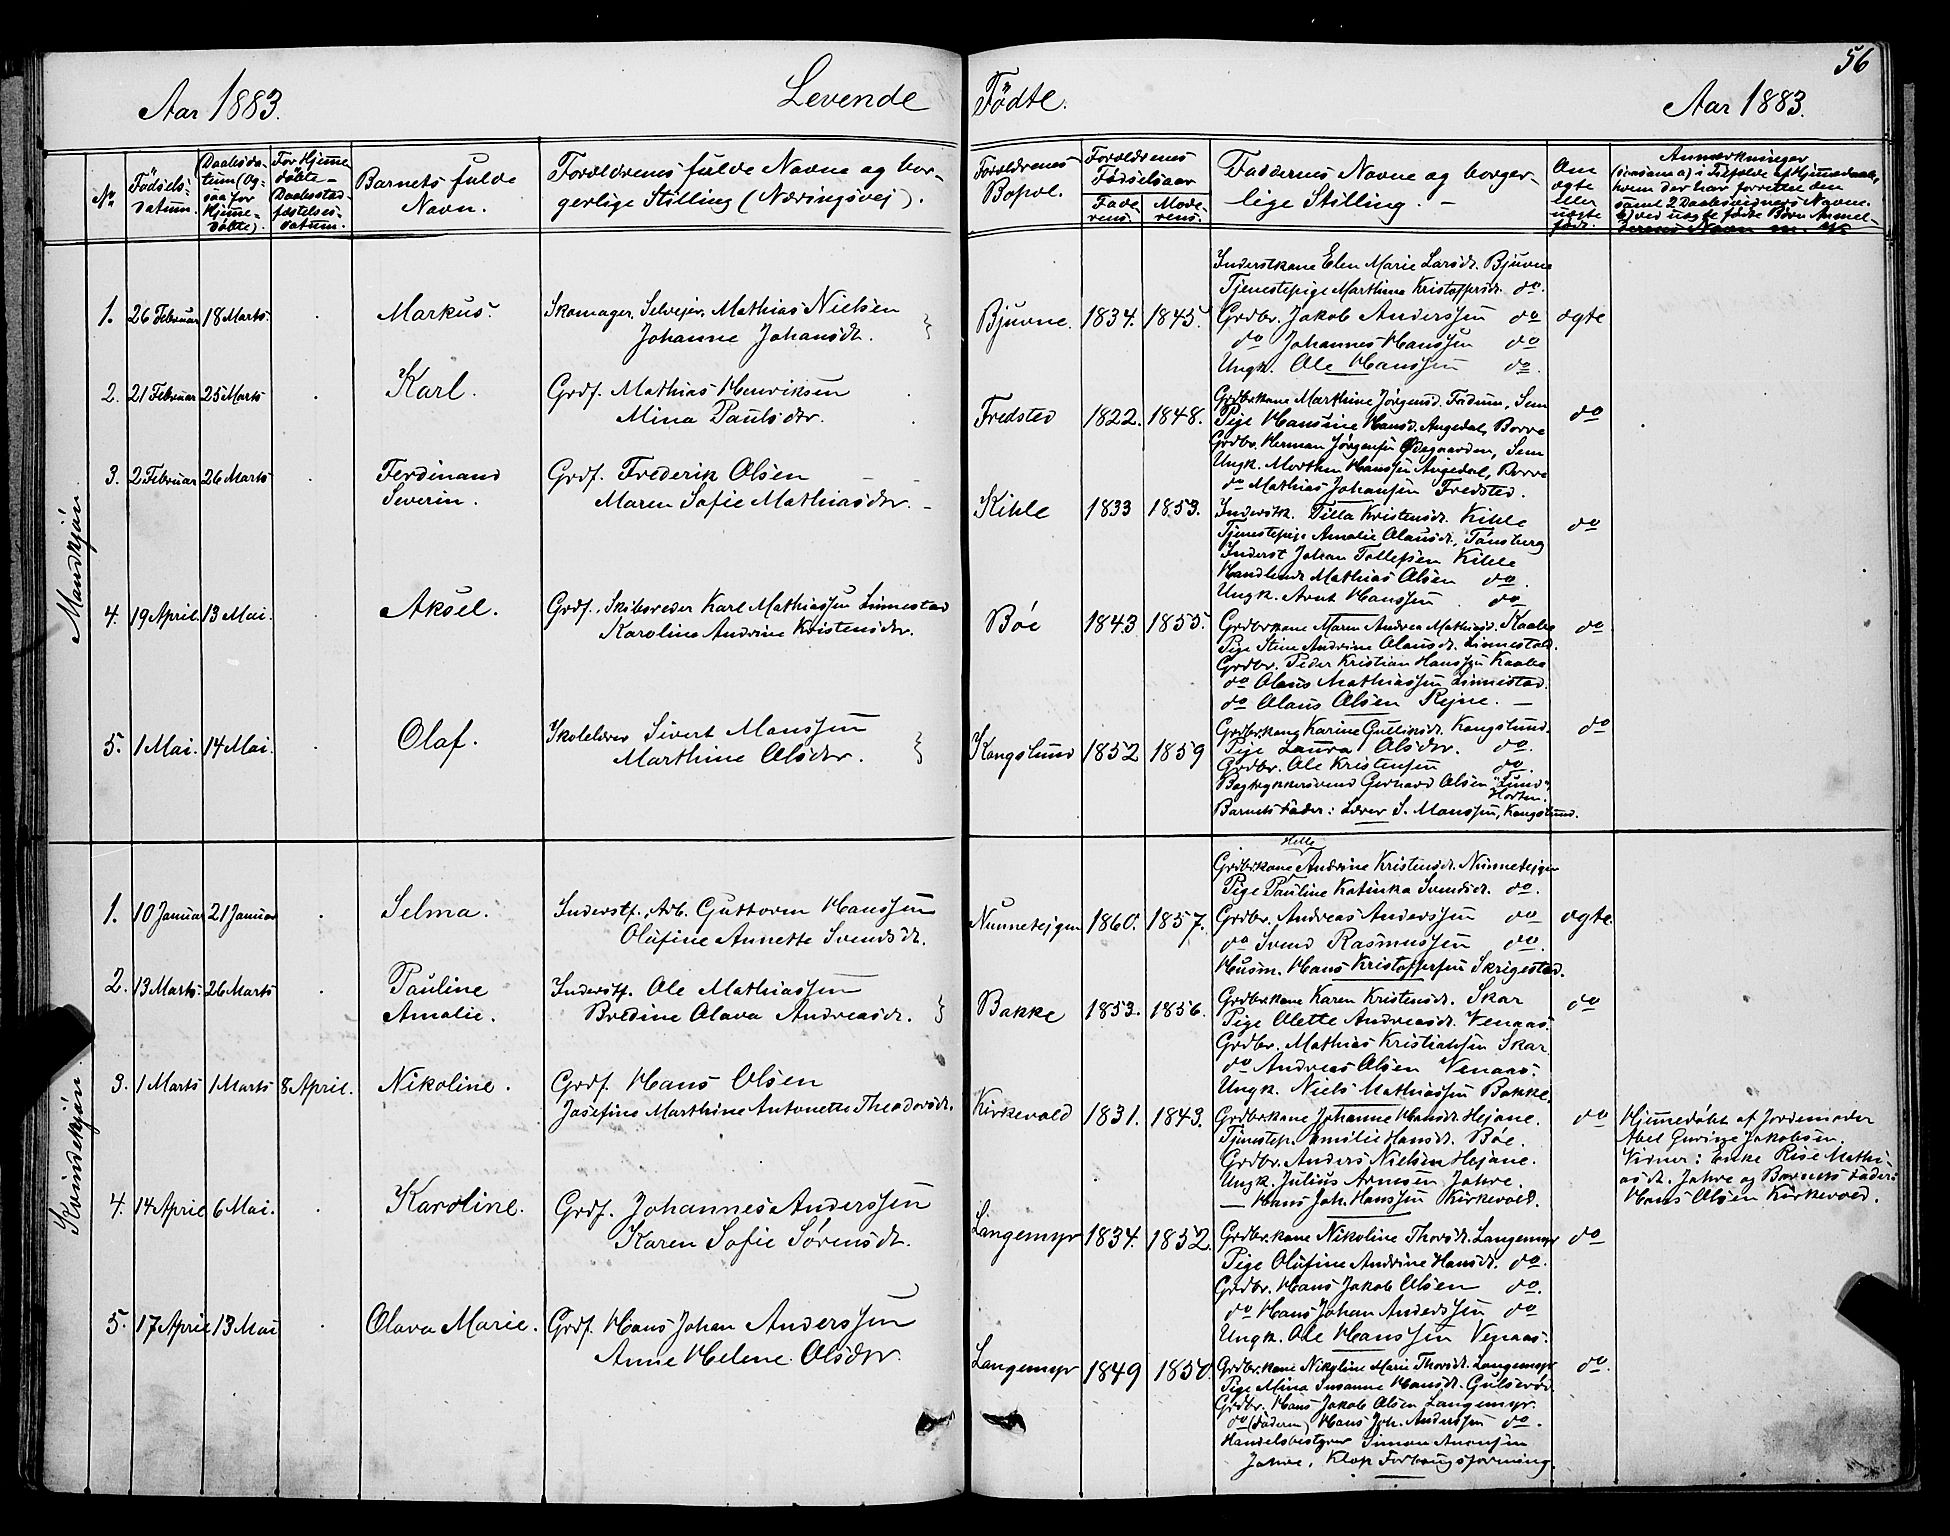 56
Aar 1883. Levende Födte. Aar 1883.
No Födsels-datum. Daabsda-tum (Og-saa for Hjemme-döbte). For Hjemme döbte – Daabsstad-fæstelses-datum. Barnets fulde Navn. Forældrenes fulde Navne og bor-gerlige Stilling (Næringsvej). Forældrenes Bopæl. Forældrenes Födselsaar Fade-rens. Mode-rens. Faddernes Navne og borger-lige Stilling. – Om ægte eller uægte födt. Anmærkninger
Mandkjön.
1. 26 Februar 18 Marts. Markus. Skomager, Selvejer, Mathias Nielsen
Johanne Johansdr.
Bjuvne. 1834. 1845. ægte
Inderstkone Elen Marie Larsdr. Bjuvne
Tjenestepige Marthine Kristoffersdr. do.
Grdbr. Jakob Anderssen do
do Johannes Hanssen do
Ungk. Ole Hanssen do.
2. 21 Februar 25 Marts Karl. Grdf. Mathias Henriksen
Mina Paulsdtr.
Fredsted 1822. 1848. do
Grdbr.kone Marthine Jörgensd. Fadum, Sem
Pige Hansine Hansd. Angedal, Borre
Grdbr. Herman Jörgensen Ödegaarden, Sem
Ungk. Morthen Hanssen Angedal, Borre
do Mathias Johansen Fredsted.
3. 2 Februar 26 Marts Ferdinand Severin. Grdf. Frederik Olsen
Maren Sofie Mathiasdtr.
Kihle 1833 1853. do
Inderstk. Tilla Kristensdr. Kihle
Tjenestepige Amalie Olausdr, Tönsberg
Inderst Johan Tollefsen Kihle
Handlende Mathias Olsen do.
Ungk. Arnt Hanssen do
4. 19 April. 13 Mai. Aksel. Grdf., Skibsreder Karl Mathiassen Linnestad
Karoline Andrine Kristensdtr.
Böe 1843 1855. do
Grdbr.kone Maren Andrea Mathiasd. Kaabe
Pige Stine Andrine Olausdr. Linnestad.
Grdbr. Peder Kristian Hanssen Kaabe
do Olaus Mathiassen Linnestad.
do Olaus Olsen Rejne. –
5. 1 Mai. 14 Mai. Olaf. Skolelærer Sivert Monssen
Marthine Olsdtr.
Kongslund 1852 1859 do
Grdbr.kone Karine Gulliksdr. Kongslund.
Pige Laura Olsdtr. do.
Grdbr. Ole Kristensen do.
Bogtrykkersvend Gerhard Olsen "Lund" Horten.
Barnets Fader: Lærer S. Monssen, Kongslund.
Kvindekjön.
1. 10 Januar 21 Januar Selma. Inderstf., Arb. Guttorm Hanssen
Olufine Annette Svendsdr.
Nunnetejgen 1860. 1857. ægte
Helle
Grdbr.kone Andrine Kristensdr. Nunnetejgen
Pige Pauline Katinka Svendsdr. do.
Grdbr. Andreas Anderssen do
do Svend Rasmussen do.
Husm. Hans Kristoffersen Skrigestad.
2. 13 Marts. 26 Marts Pauline Amalie. Inderstf. Ole Mathiassen
Bredine Olava Andreasdr.
Bakke 1853. 1856. do
Grdbr.kone Karen Kristensdr. Skar
Pige Olette Andreasdr. Venaas.
Grdbr. Mathias Kristiansen Skar
do Andreas Olsen Venaas.
Ungk. Niels Mathiassen Bakke.
3. 1 Marts 1 Marts 8 April. Nikoline. Grdf. Hans Olsen
Josefine Marthine Antonette Theodorsdr.
Kirkevold 1831. 1843. do
Grdbr.kone Johanne Hansdr. Hejane.
Tjenestep. Emilie Hansdr. Böe.
Grdbr. Anders Nielsen Hejane.
Ungk. Julius Arnesen Jahre.
– Hans Joh. Hanssen Kirkevold.
Hjemmedöbt af Jordemoder
Abel Gurine Jakobsen.
Vidner: Enke Rise Mathi-
asdr. Jahre og Barnets Fader:
Hans Olsen Kirkevold.
4. 14 April 6 Mai. Karoline. Grdf. Johannes Anderssen
Karen Sofie Sörensdr.
Langemyr 1834. 1852. do
Grdbr.kone Nikoline Thorsdr. Langemyr
Pige Olufine Andrine Hansdr. do.
Grdbr. Hans Jakob Olsen do.
do Hans Johan Anderssen do
Ungk. Ole Hanssen Venaas.
5. 17 April 13 Mai Olava Marie. Grdf. Hans Johan Anderssen
Anne Helene Olsdtr.
Langemyr 1849 1850. do.
Grdbr.kone Nikoline Marie Thorsdr. Langemyr
Pige Mina Susanne Hansdr. Gulseröd.
Grdbr. Hans Jakob Olsen Langemyr.
do (Faderen) Hans Joh. Anderssen do.
Handelsbestyrer Simon Anensen
Jahre,